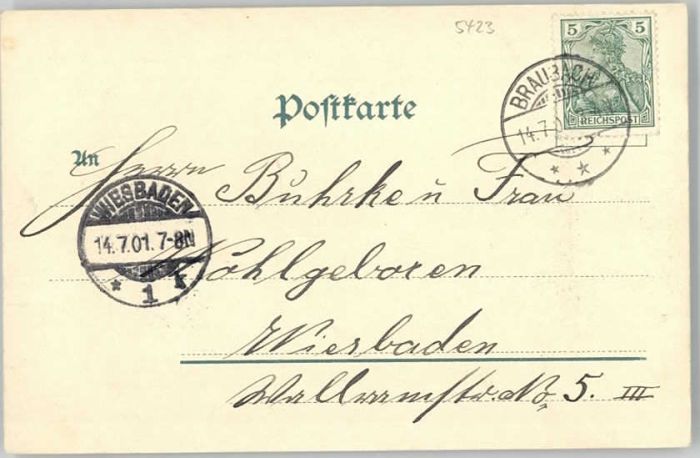 5423
5 5
REICHSPOST
BRAUBACH
14.7.0
* * *
Postkarte
An
Herrn Buhrke u Frau
WIESBADEN
14.7.01. 7-8N
* 1 k
Wohlgeboren
Wiesbaden
Walluamstr. No 5. III